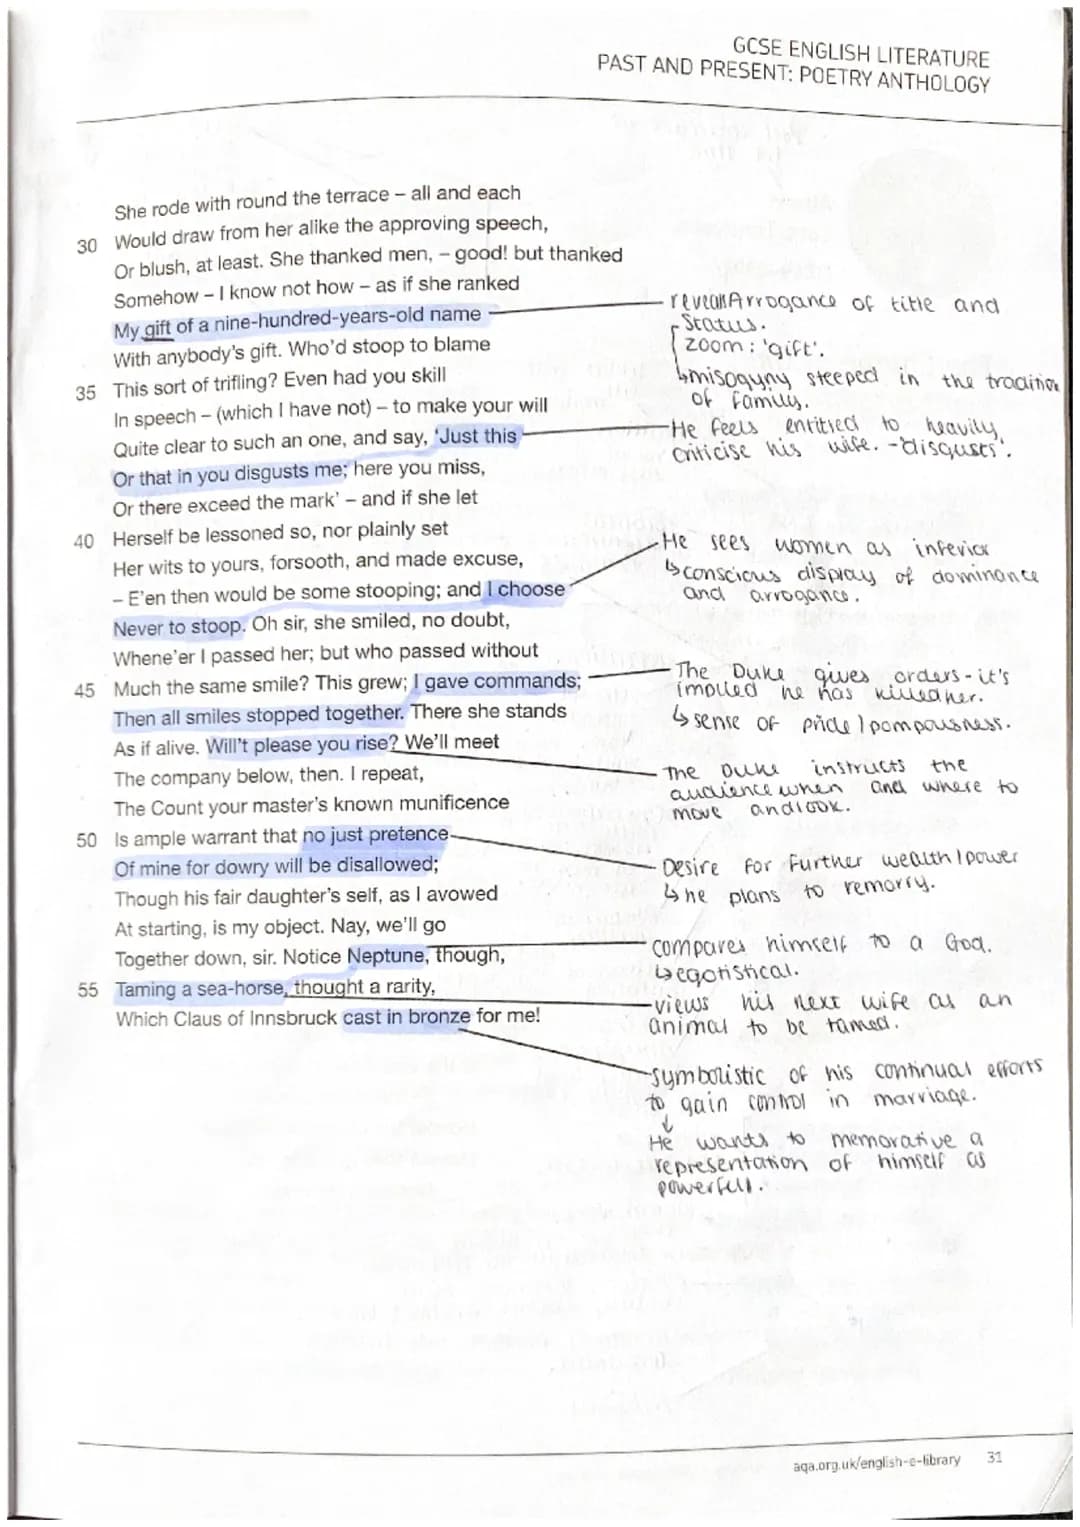 GCSE ENGLISH LITERATURE
PAST AND PRESENT: POETRY ANTHOLOGY
She rode with round the terrace – all and each
30 Would draw from her alike the approving speech,
Or blush, at least. She thanked men, – good! but thanked
Somehow – I know not how – as if she ranked
My gift of a nine-hundred-years-old name
With anybody's gift. Who'd stoop to blame
35 This sort of trifling? Even had you skill
In speech – (which I have not) – to make your will
Quite clear to such an one, and say, 'Just this
Or that in you disgusts me; here you miss,
Or there exceed the mark' – and if she let
40 Herself be lessoned so, nor plainly set
Her wits to yours, forsooth, and made excuse,
– E'en then would be some stooping; and I choose
Never to stoop. Oh sir, she smiled, no doubt,
Whene'er I passed her; but who passed without
45 Much the same smile? This grew; I gave commands;
Then all smiles stopped together. There she stands
As if alive. Will't please you rise? We'll meet
The company below, then. I repeat,
The Count your master's known munificence
50 Is ample warrant that no just pretence
Of mine for dowry will be disallowed;
Though his fair daughter's self, as I avowed
At starting, is my object. Nay, we'll go
Together down, sir. Notice Neptune, though,
55 Taming a sea-horse, thought a rarity,
Which Claus of Innsbruck cast in bronze for me!
Arrogance of title and
status.
zoom: 'gift'.
↳misogyny steeped in the tradition
of family.
He feels entitled to heavily
criticise his wife. - 'disgusts'.
He sees women as inferior
↳conscious display of dominance
and arrogance.
The Duke gives orders - it's
implied he has killed her.
↳ sense of pride / pompousness.
The Duke instructs the
audience when and where to
move and look.
Desire for further wealth / power
↳he plans to remarry.
compares himself to a God.
↳egotistical.
views his next wife as an
animal to be tamed.
symbolistic of his continual efforts
to gain control in marriage.
↓
He wants to memorative a
representation of himself as
powerfull.
aqa.org.uk/english-e-library 31